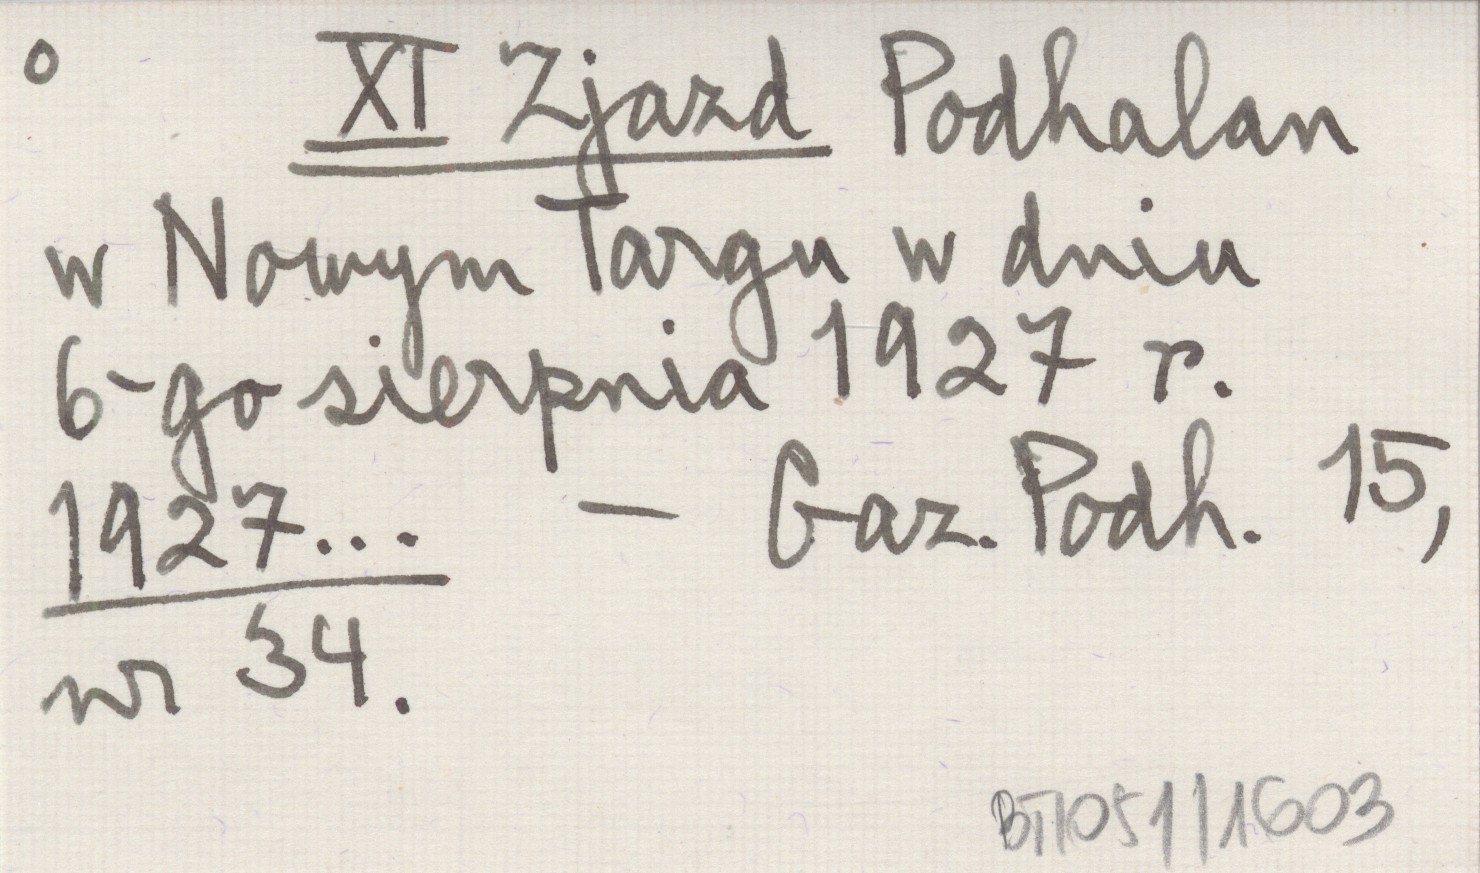 o XI Zjazd Podhalan
w Nowym Targu w dniu
6-go sierpnia 1927 r.
1927... — Gaz. Podh. 15,
nr 34.
BT/051/1603